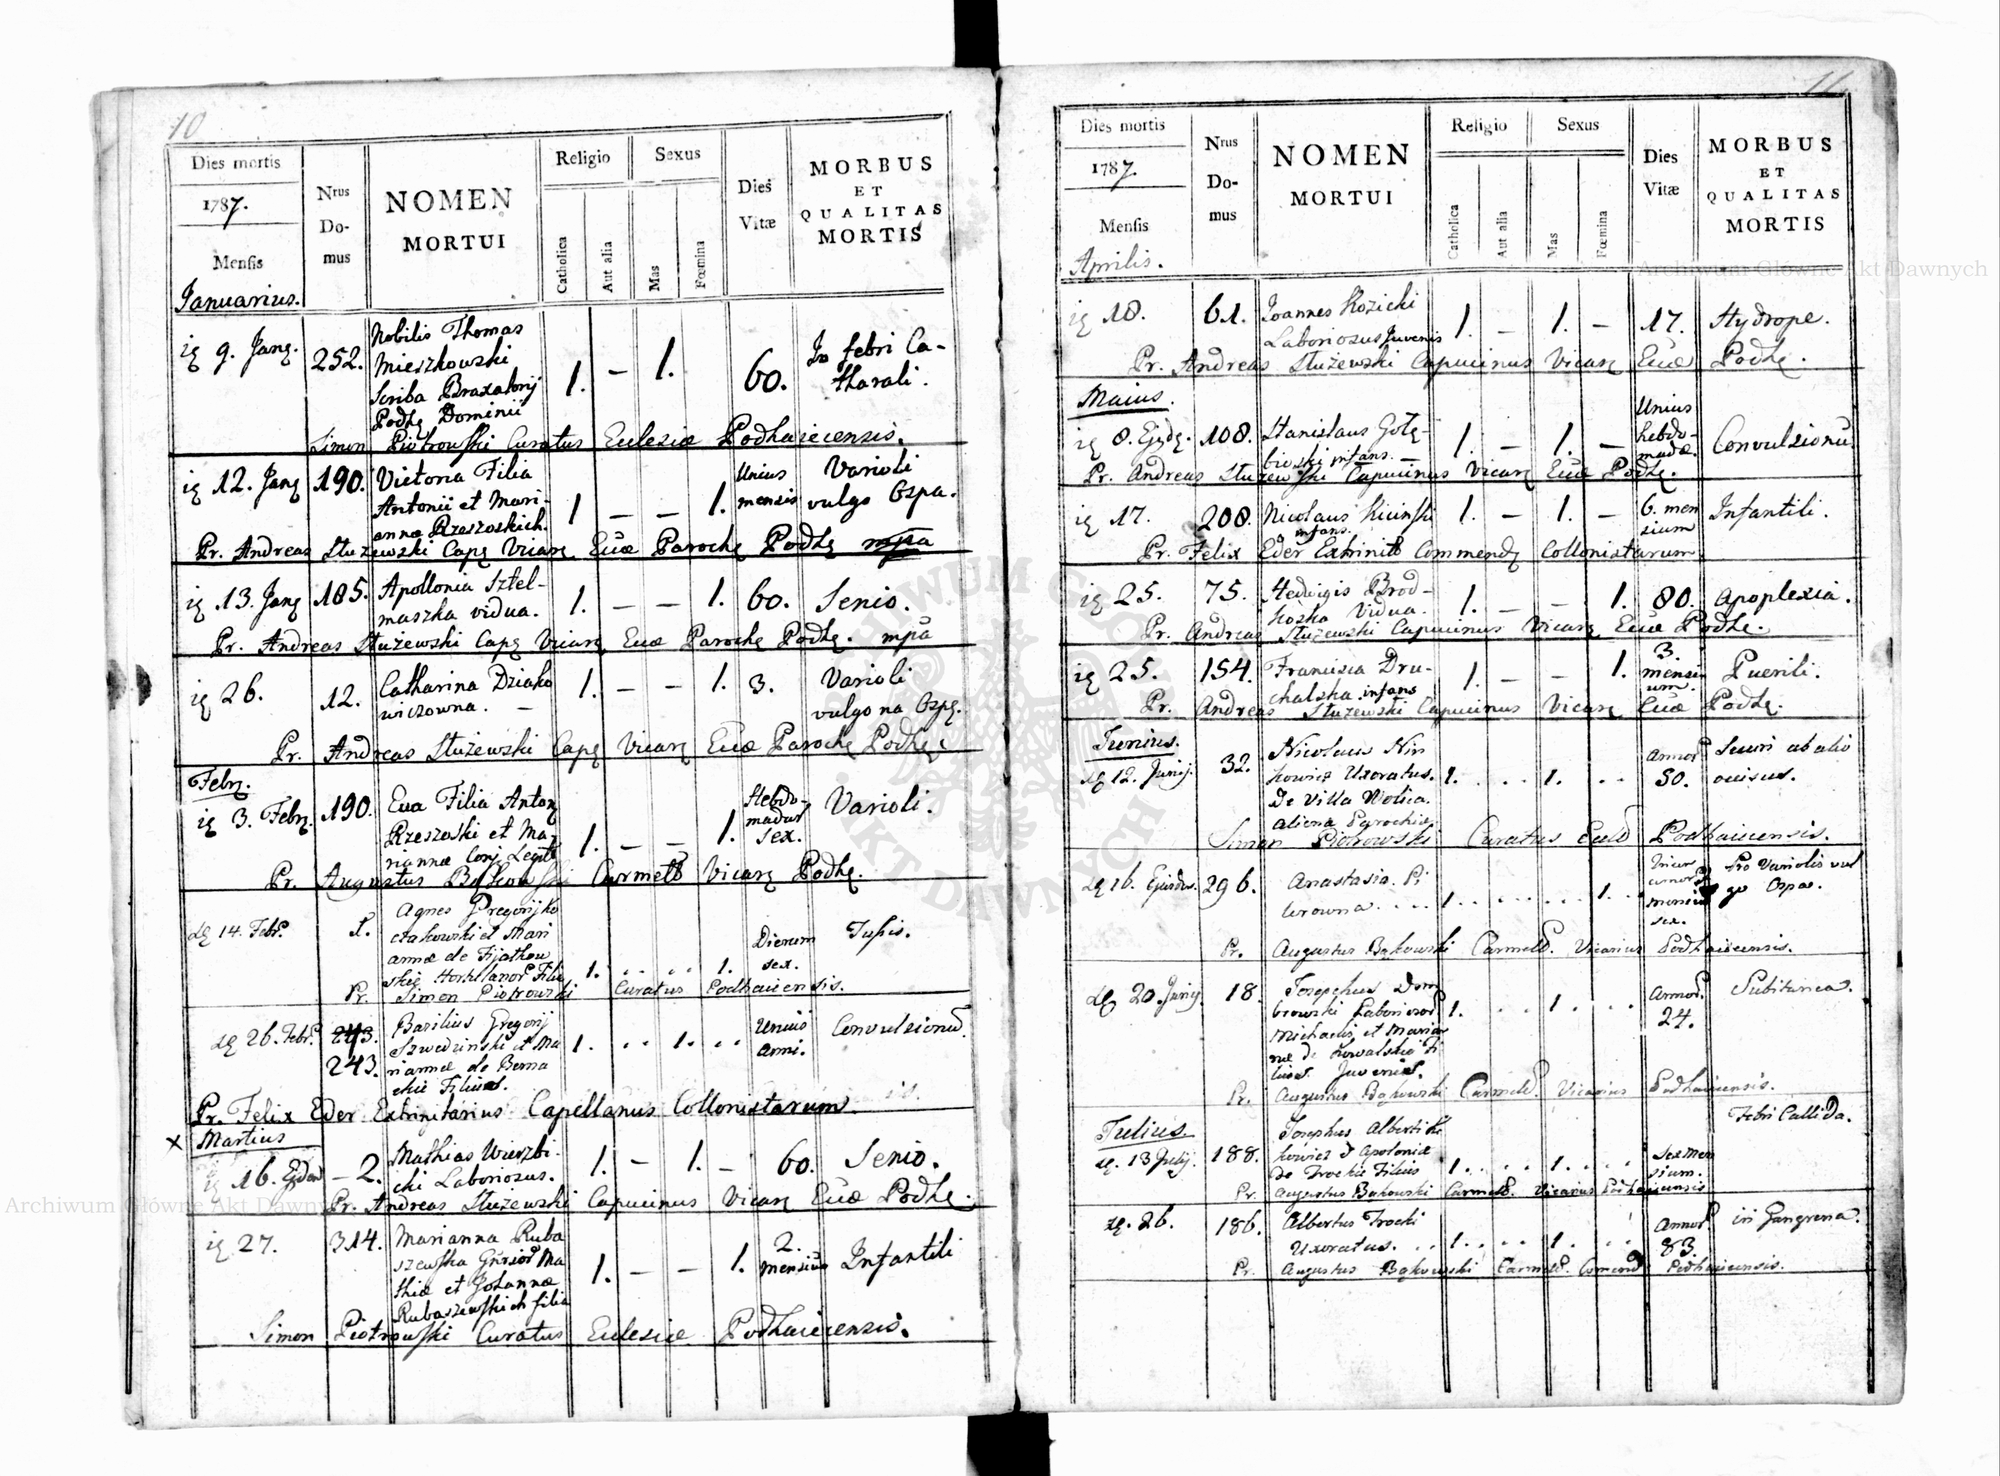 10
Dies mortis
1787.
Mensis
Januarius.
Nrus
Do-
mus
NOMEN
MORTUI
Religio
Catholica
Aut alia
Sexus
Mas
Fœmina
Dies
Vitæ
MORBUS
ET
QUALITAS
MORTIS
9. Janu. 252. Nobilis Thomas
Mieszkowski
Scriba Braxatorij
Podh. Dominii
1. – 1. 60. In febri Ca-
tharali.
Simon Piotrowski Curatus Ecclesiæ Podhaiecensis.
12. Jan 190. Victoria Filia
Antonii et Mari-
annæ Rzeszoskich.
1 – – 1. Unius
mensis
Varioli
vulgo Ospa.
Pr. Andreas Stużewski Cap Vicar Eccæ Paroch Podh mpa
13. Jan 185. Apollonia Sztel-
maszka vidua.
1. – – 1. 60. Senio.
Pr. Andreas Stużewski Cap Vicar Eccæ Paroch Podh. mpa
26. 12. Catharina Dziako
wiczowna. –
1. – – 1. 3. Varioli
vulgo na Osp.
Pr. Andreas Stużewski Cap Vicar Eccæ Paroch Podh.
Febr.
3. Febr. 190. Eva Filia Anton
Rzeszoski et Ma-
riannæ Conj Legit
1. – – 1. Hebdo-
madar
sex.
Varioli.
Pr. Augustus Bąkowski Carmelit Vicar Podh.
14. Febr. 1. Agnes Gregorij Ko
czakowski et Mari
annæ de Fijałkow
skie Hortulanor Filia
1. .. .. 1. Dierum
sex.
Tussis.
Pr. Simon Piotrowski Curatus Podhaiecensis.
26. Febr. 243.
243. Basilius Gregorij
Szwedzinski et Ma
riannæ de Berna
ckie Filius.
1. .. 1. .. Unius
anni.
Convulsionu.
Pr. Felix Eder Extrinitarius Capellanus Collonistarum
x Martius
16. Ejusd – 2. Mathias Wierzbi-
cki Laboriosus.
1. – 1. – 60. Senio.
Pr. Andreas Stużewski Capucinus Vicar Eccæ Podh.
27. 314. Marianna Ruba
szewska Ma
thiæ et Johannæ
Rubaszewskich filia
1. – – 1. 2.
mensium
Infantili
Simon Piotrowski Curatus Eclesiæ Podhaiecensis.
11
Dies mortis
1787.
Mensis
Aprilis.
Nrus
Do-
mus
NOMEN
MORTUI
Religio
Catholica
Aut alia
Sexus
Mas
Fœmina
Dies
Vitæ
MORBUS
ET
QUALITAS
MORTIS
18. 61. Joannes Kozicki
Laboriosus Juvenis
1. – 1. – 17. Hydrope.
Pr. Andreas Stużewski Capucinus Vicar Eccæ Podh.
Maius.
8. Ejusd. 108. Stanislaus Gołę-
biewski infans.
1. – 1. – Unius
hebdo-
madæ.
Convulsionu
Pr. Andreas Stużewski Capucinus Vicar Eccæ Podh.
17. 208. Nicolaus Kicinski
infans.
1. – 1. – 6. men
sium
Infantili.
Pr. Felix Eder Extrinit Commend Collonistarum
25. 75. Hedvigis Brod-
koska Vidua.
1. – – 1. 80. Apoplexia.
Pr. Andreas Stużewski Capucinus Vicar Eccæ Podh.
25. 154. Francisca Dru-
chalska infans
1. – – 1. 3.
mensi
um.
Puerili.
Pr. Andreas Stużewski Capucinus Vicar Eccæ Podh.
Junius.
12. Junij. 32. Nicolaus Nin
kowicz Uxoratus.
De Villa Wolica.
aliena Parochia
1. .. 1. .. Annor
50. Securi ab alio
occisus.
Simon Piotrowski Curatus Eccl Podhaiecensis.
16. Ejusdem. 296. Anastasia Pi
worowna...
1. .. .. 1. annor
mensium
sex.
Ex Variolis vul
go Ospas.
Pr. Augustus Bąkowski Carmelit. Vicarius Podhaiecensis.
20 Junij 18. Josephus Dom
browski Laboriosor
Michaelis et Marian
næ de Kowalskie Fi
lius. Juvenis.
1. .. 1. .. Annor.
24.
Subitanea.
Pr. Augustus Bąkowski Carmelit. Vicarius Podhaiecensis.
Julius.
13 Julij. 188. Josephus Alberti Ko
kowicz et Apoloniæ
De Trockie Filius
1. .. 1. .. Sex Men
sium.
Febri Callida.
Pr. Augustus Bąkowski Carmelit. Vicarius Podhaiecensis
26. 186. Albertus Trocki
Uxoratus...
1. .. 1. .. Annor
83.
in Gangrena.
Pr. Augustus Bąkowski Carmelit. Comend Podhaiecensis.
Archiwum Główne Akt Dawnych
Archiwum Główne Akt Dawnych
ARCHIWUM GŁÓWNE AKT DAWNYCH